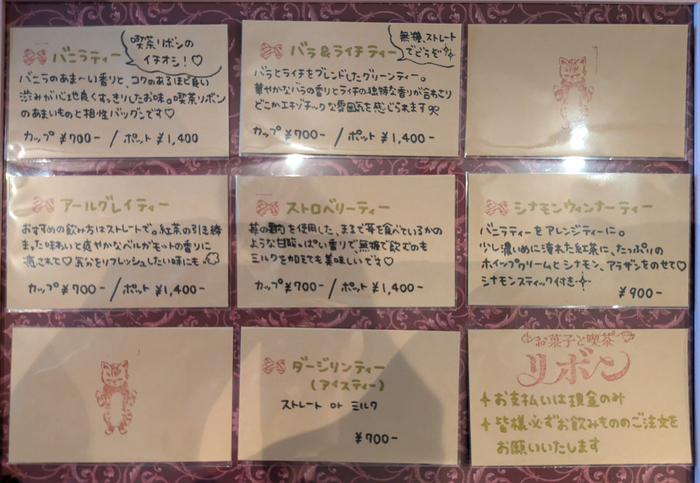 バニラティー
喫茶リボンの
イチオシ!♡
バニラのあま〜い香りと、コクのあるほど良い
渋みが心地良くすっきりしたお味。喫茶リボン
のあまいものと相性バツグンです♡
カップ ¥700- / ポット ¥1,400
バラ&ライチティー
無糖、ストレート
でどうぞ
バラとライチをブレンドしたグリーンティー。
華やかなバラの香りとライチの独特な香りが合わさり
どこかエキゾチックな雰囲気を感じられます
カップ ¥700- / ポット ¥1,400-
アールグレイティー
おすすめの飲み方はストレートで。紅茶の引き締
まった味わいと爽やかなベルガモットの香りに
癒されて♡気分をリフレッシュしたい時にも
カップ ¥700- / ポット ¥1,400-
ストロベリーティー
苺の を使用した、まるで苺を食べているかの
ような甘酸っぱい香りで、無糖で飲むのも
ミルクを加えても美味しいです♡
カップ ¥700- / ポット ¥1,400-
シナモンウィンナーティー
バニラティーをアレンジティーに。
少し濃いめに淹れた紅茶に、たっぷりの
ホイップクリームとシナモン、アラザンをのせて♡
シナモンスティック付き
¥900-
ダージリンティー
(アイスティー)
ストレート or ミルク
¥700-
お菓子と喫茶
リボン
+お支払いは現金のみ
+皆様必ずお飲みもののご注文を
お願いいたします